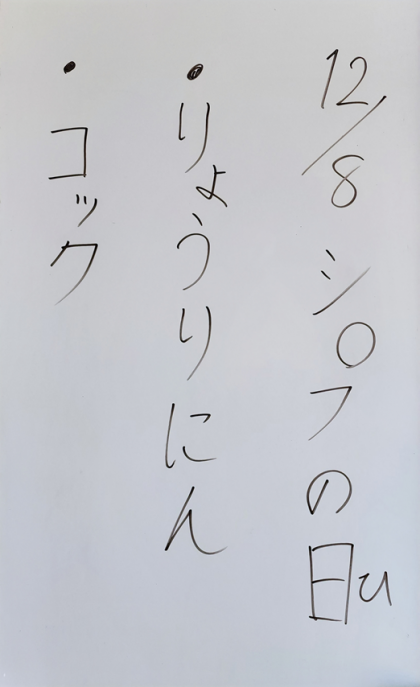 12/8 シ〇フの日ひ
・りょうりにん
・コック